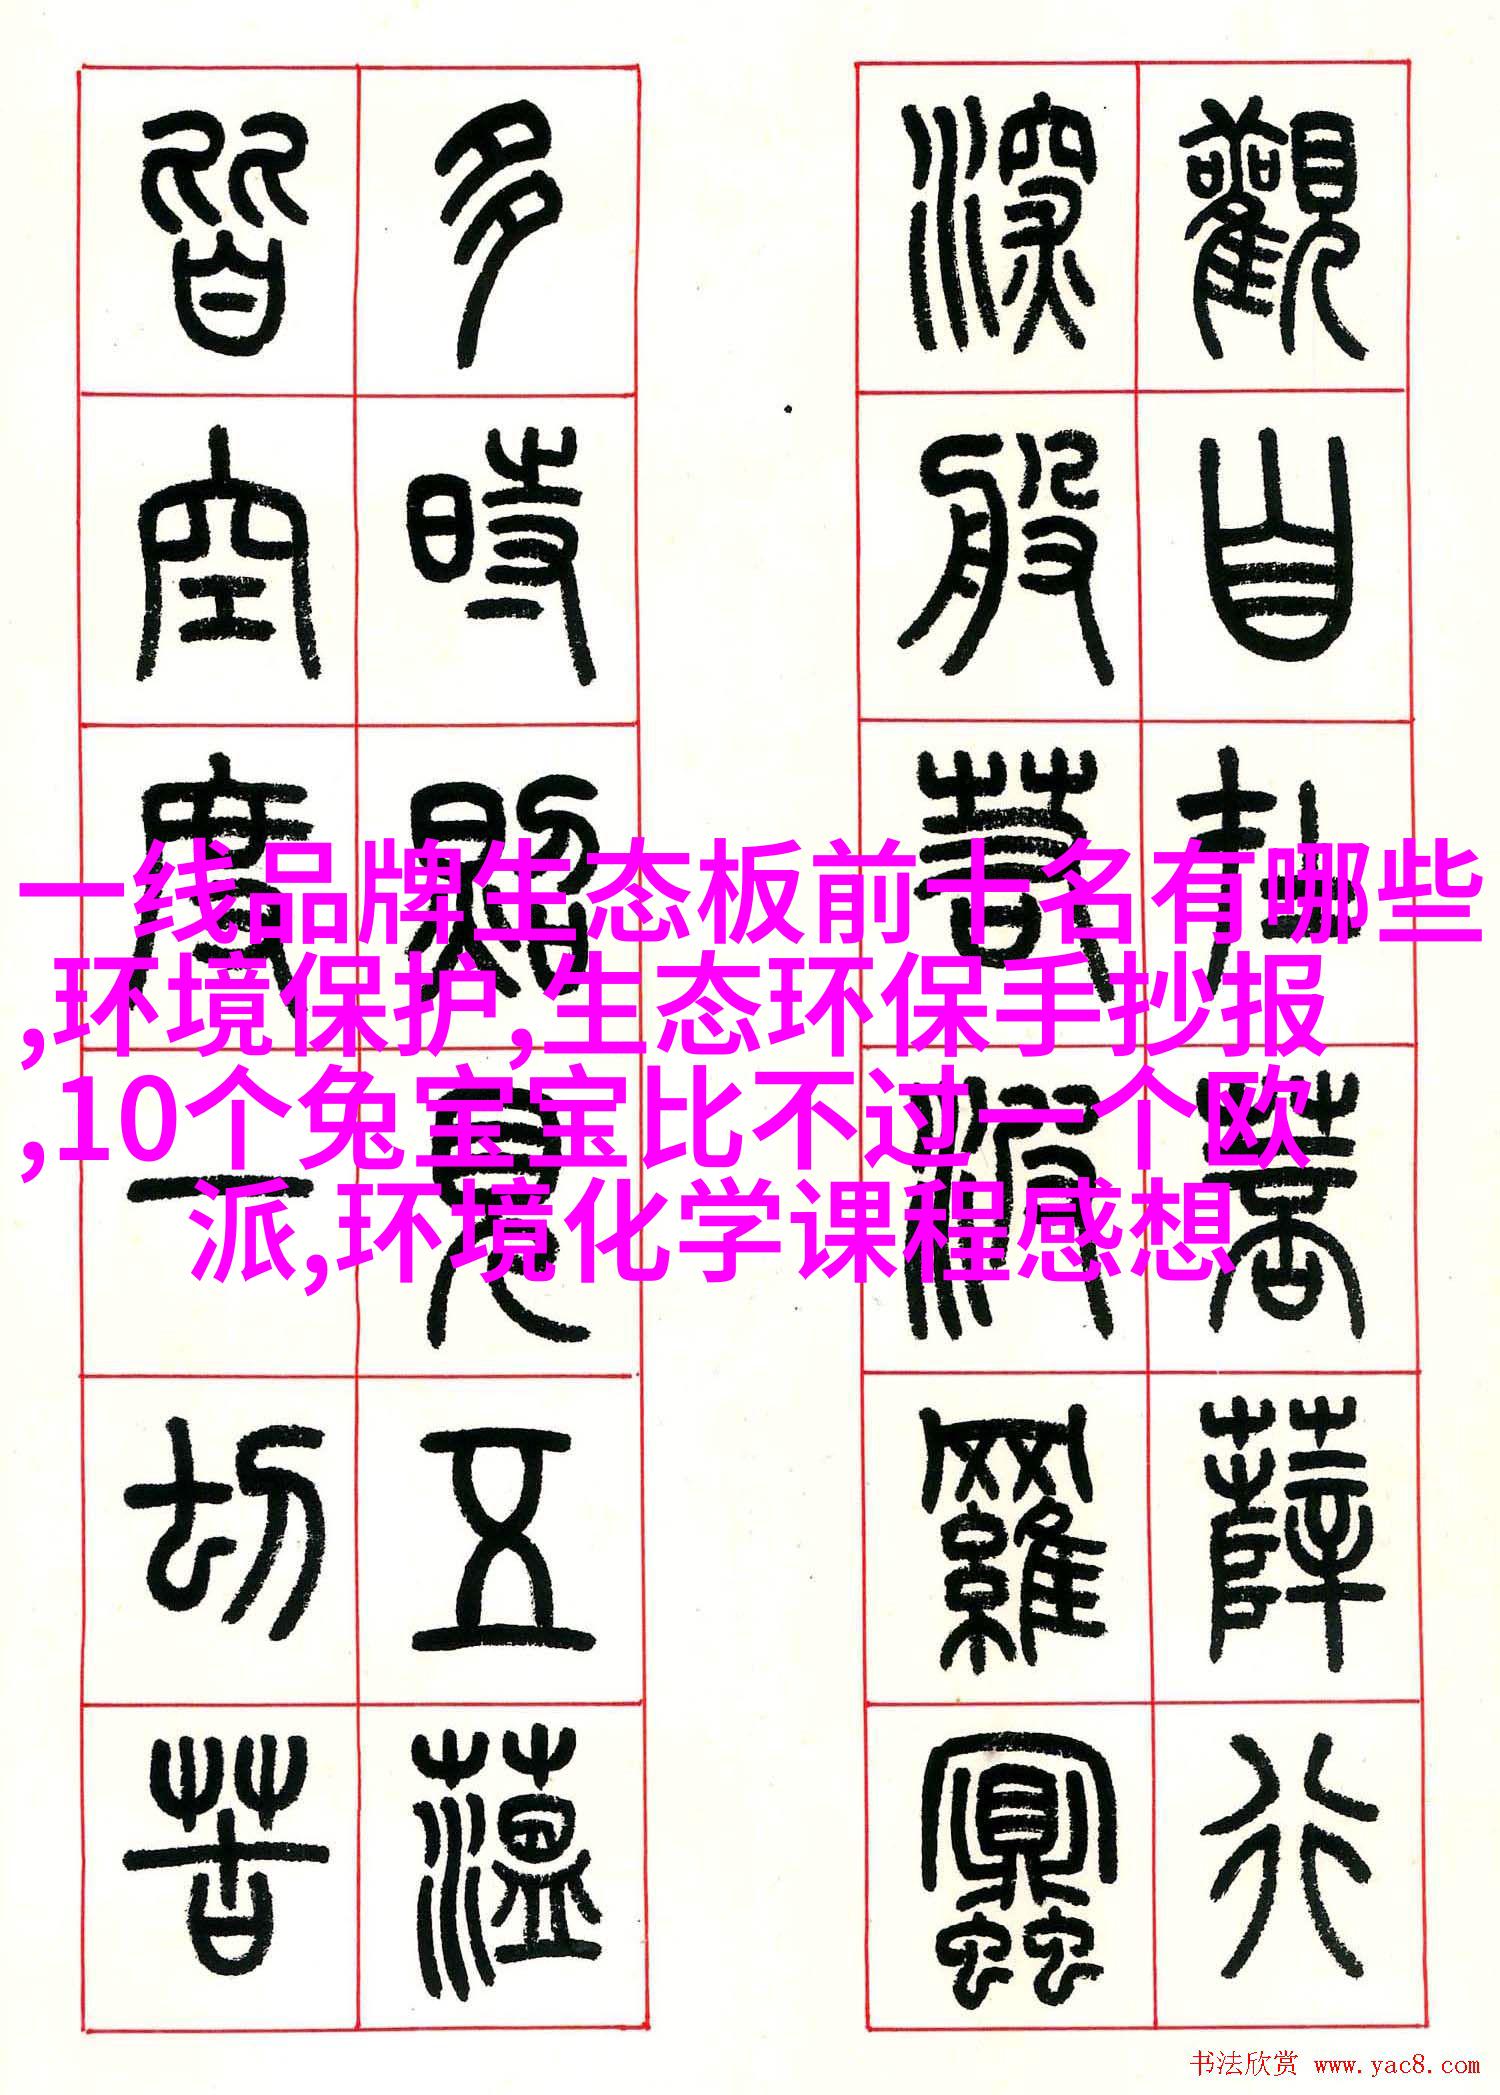 觀自在菩薩行
深般若波羅蜜
多時照見五薀
皆空度一切苦
一线品牌生态板前十名有哪些
,环境保护,生态环保手抄报
,10个兔宝宝比不过一个欧
派,环境化学课程感想
书法欣赏 www.yac8.com